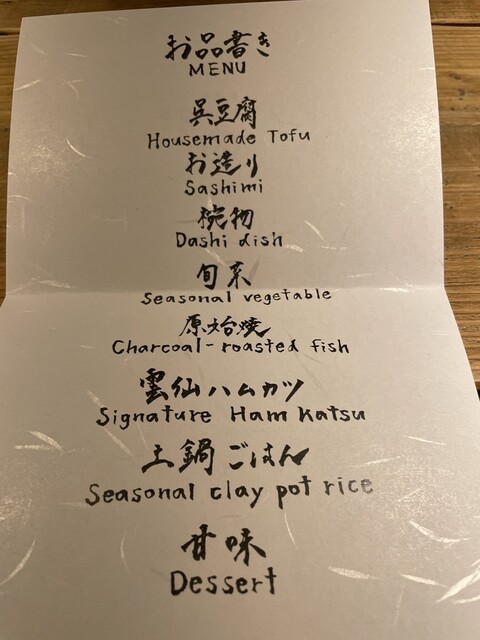 お品書き
MENU
呉豆腐
Housemade Tofu
お造り
Sashimi
椀物
Dashi dish
旬菜
Seasonal vegetable
原始焼
Charcoal-roasted fish
雲仙ハムカツ
Signature Ham Katsu
土鍋ごはん
Seasonal clay pot rice
甘味
Dessert